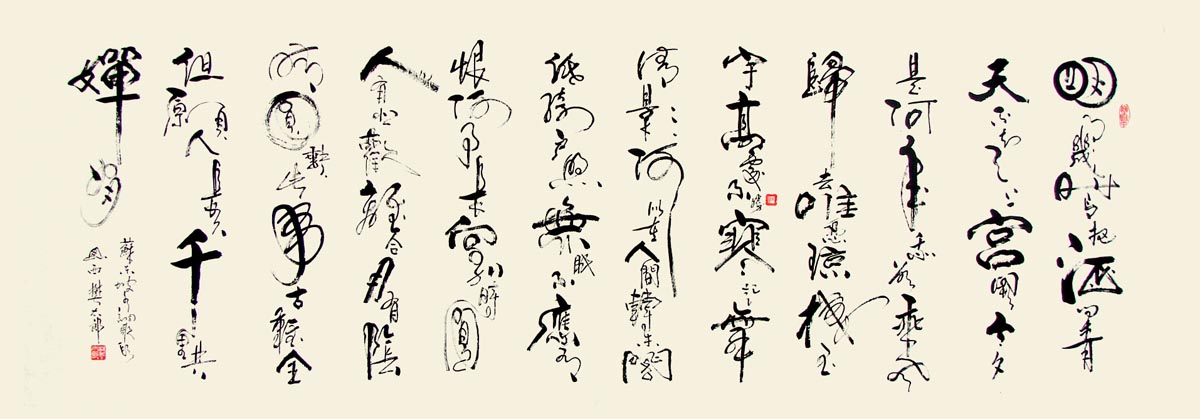 明月幾時有把酒問青
天不知天上宮闕今夕
是何年我欲乘風
歸去唯恐瓊樓玉
宇高處不勝寒起舞
清影何似在人間轉朱閣
低綺戶照無眠不應有
恨何事長向別時圓
人有悲歡離合月有陰
晴圓缺此事古難全
但願人長久千里共
嬋娟
蘇東坡